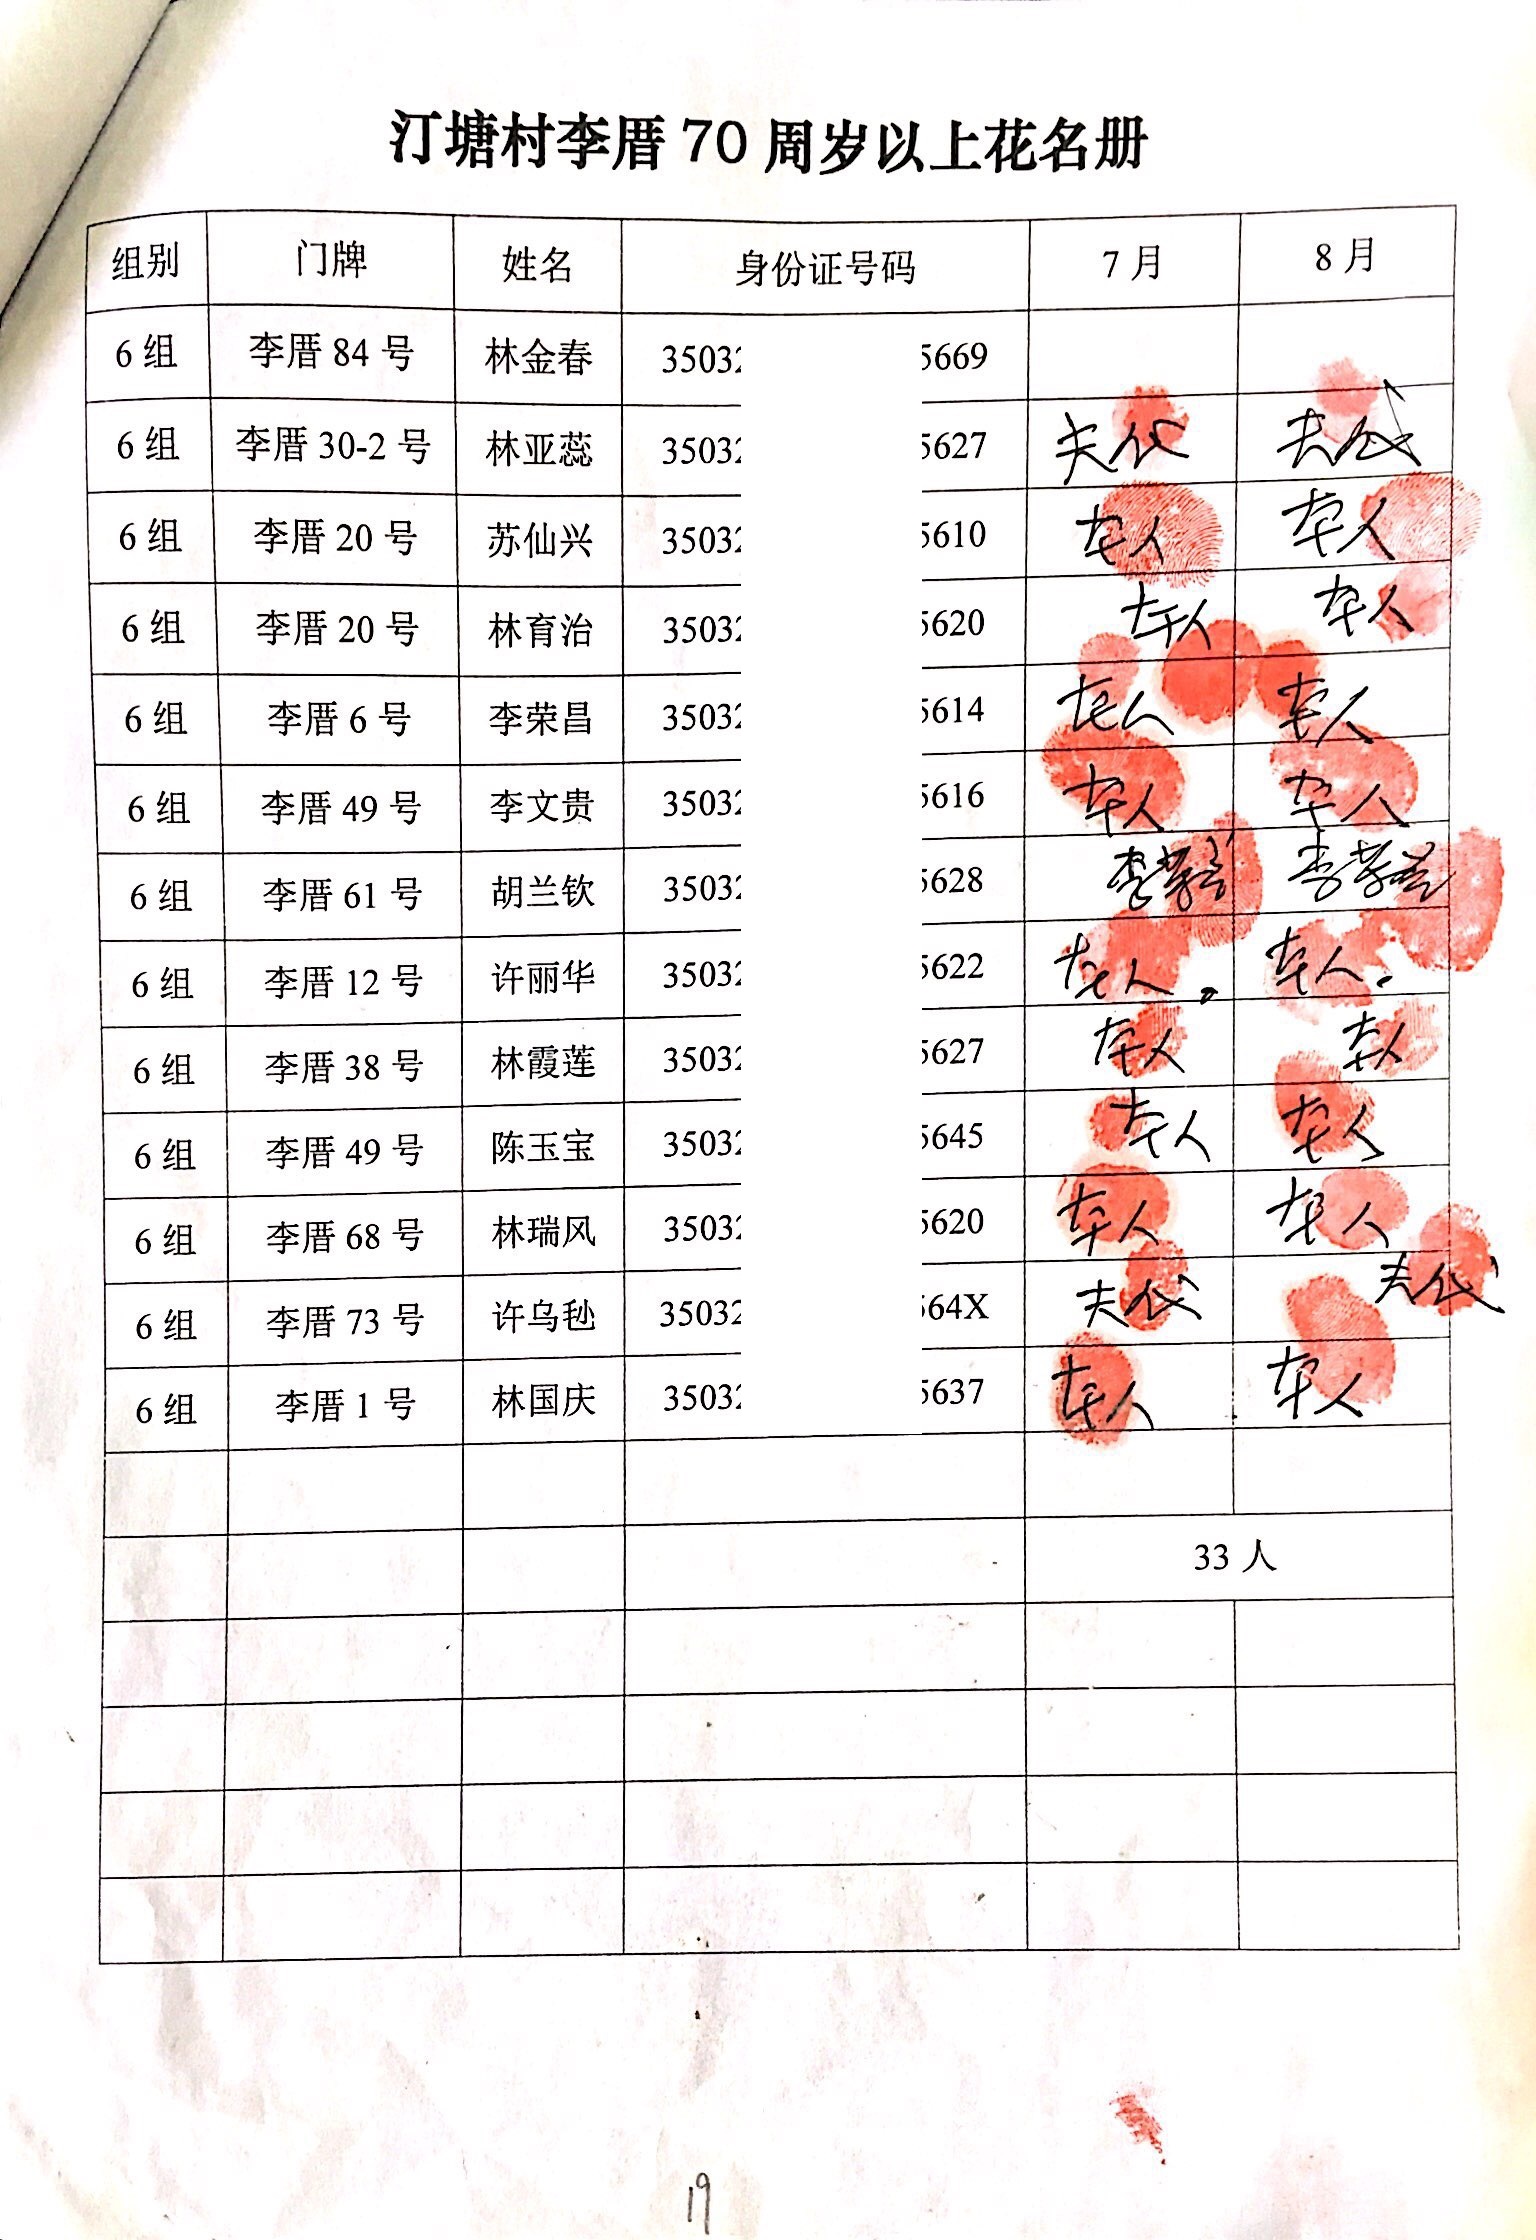 汀塘村李厝 70 周岁以上花名册
组别 门牌 姓名 身份证号码 7 月 8 月
6 组 李厝 84 号 林金春 35032 5669
6 组 李厝 30-2 号 林亚蕊 35032 5627 夫代 夫代
6 组 李厝 20 号 苏仙兴 35032 5610 本人 本人
6 组 李厝 20 号 林育治 35032 5620 本人 本人
6 组 李厝 6 号 李荣昌 35032 5614 本人 本人
6 组 李厝 49 号 李文贵 35032 5616 本人 本人
6 组 李厝 61 号 胡兰钦 35032 5628 李 李
6 组 李厝 12 号 许丽华 35032 5622 本人。 本人.
6 组 李厝 38 号 林霞莲 35032 5627 本人 本人
6 组 李厝 49 号 陈玉宝 35032 5645 本人 本人
6 组 李厝 68 号 林瑞风 35032 5620 本人 本人
6 组 李厝 73 号 许乌毜 35032 564X 夫代 夫代
6 组 李厝 1 号 林国庆 35032 5637 本人 本人
33 人
19